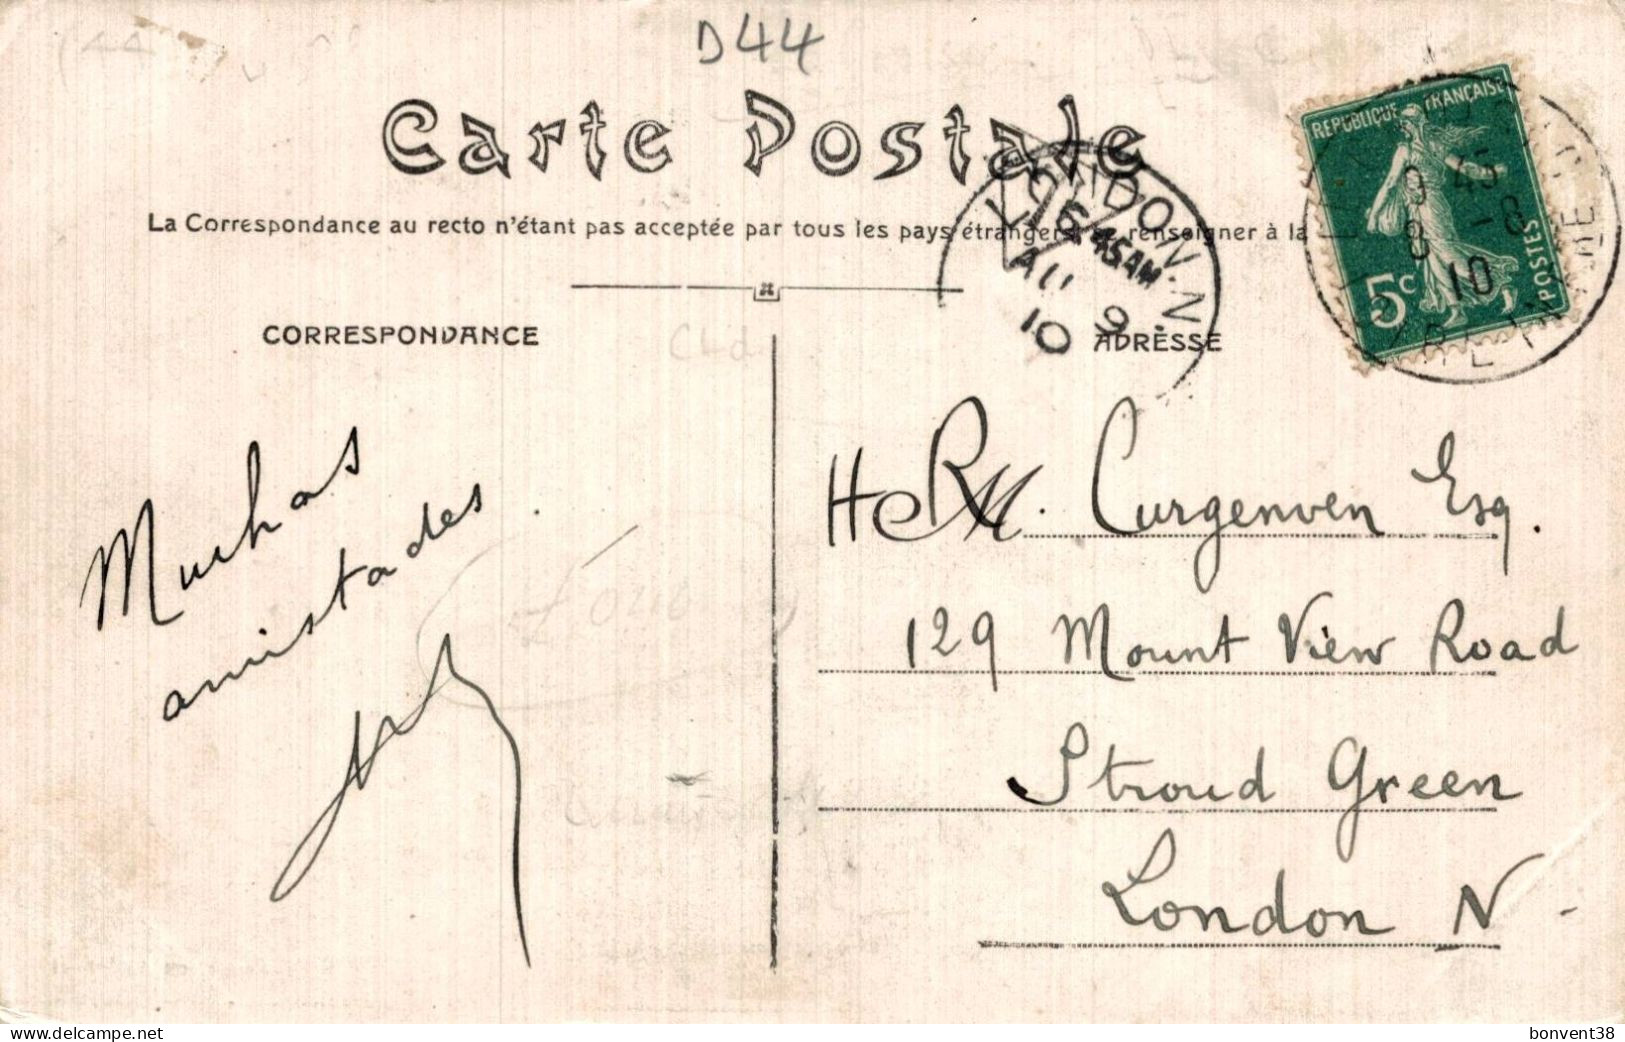 D44
Carte Postale
La Correspondance au recto n'étant pas acceptée par tous les pays étrangers, se renseigner à la
REPUBLIQUE FRANÇAISE
5c
POSTES
9 45
8 -8
10
LONDON. N
6.45AM
AU 9
10
CORRESPONDANCE
ADRESSE
Muchas
amistades
Curgenven Esq.
129 Mount View Road
Stroud Green
London N
delcampe.net
bonvent38